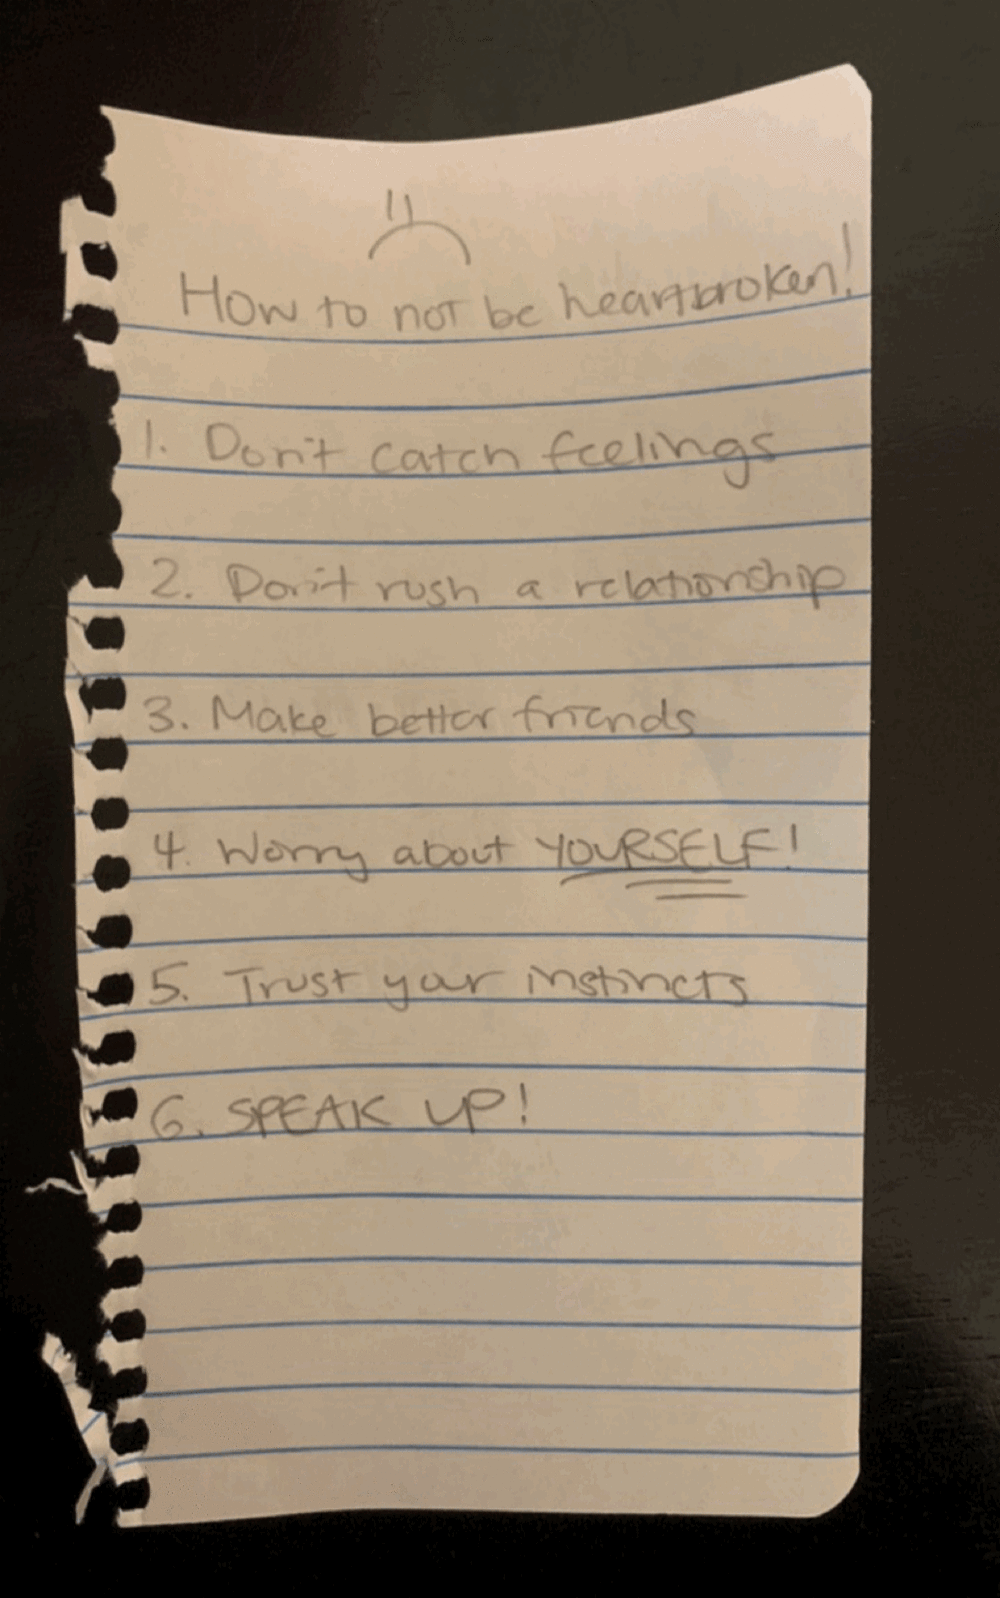 How to not be heartbroken!
1. Don't catch feelings
2. Don't rush a relationship
3. Make better friends
4. Worry about YOURSELF!
5. Trust your instincts
6. SPEAK UP!